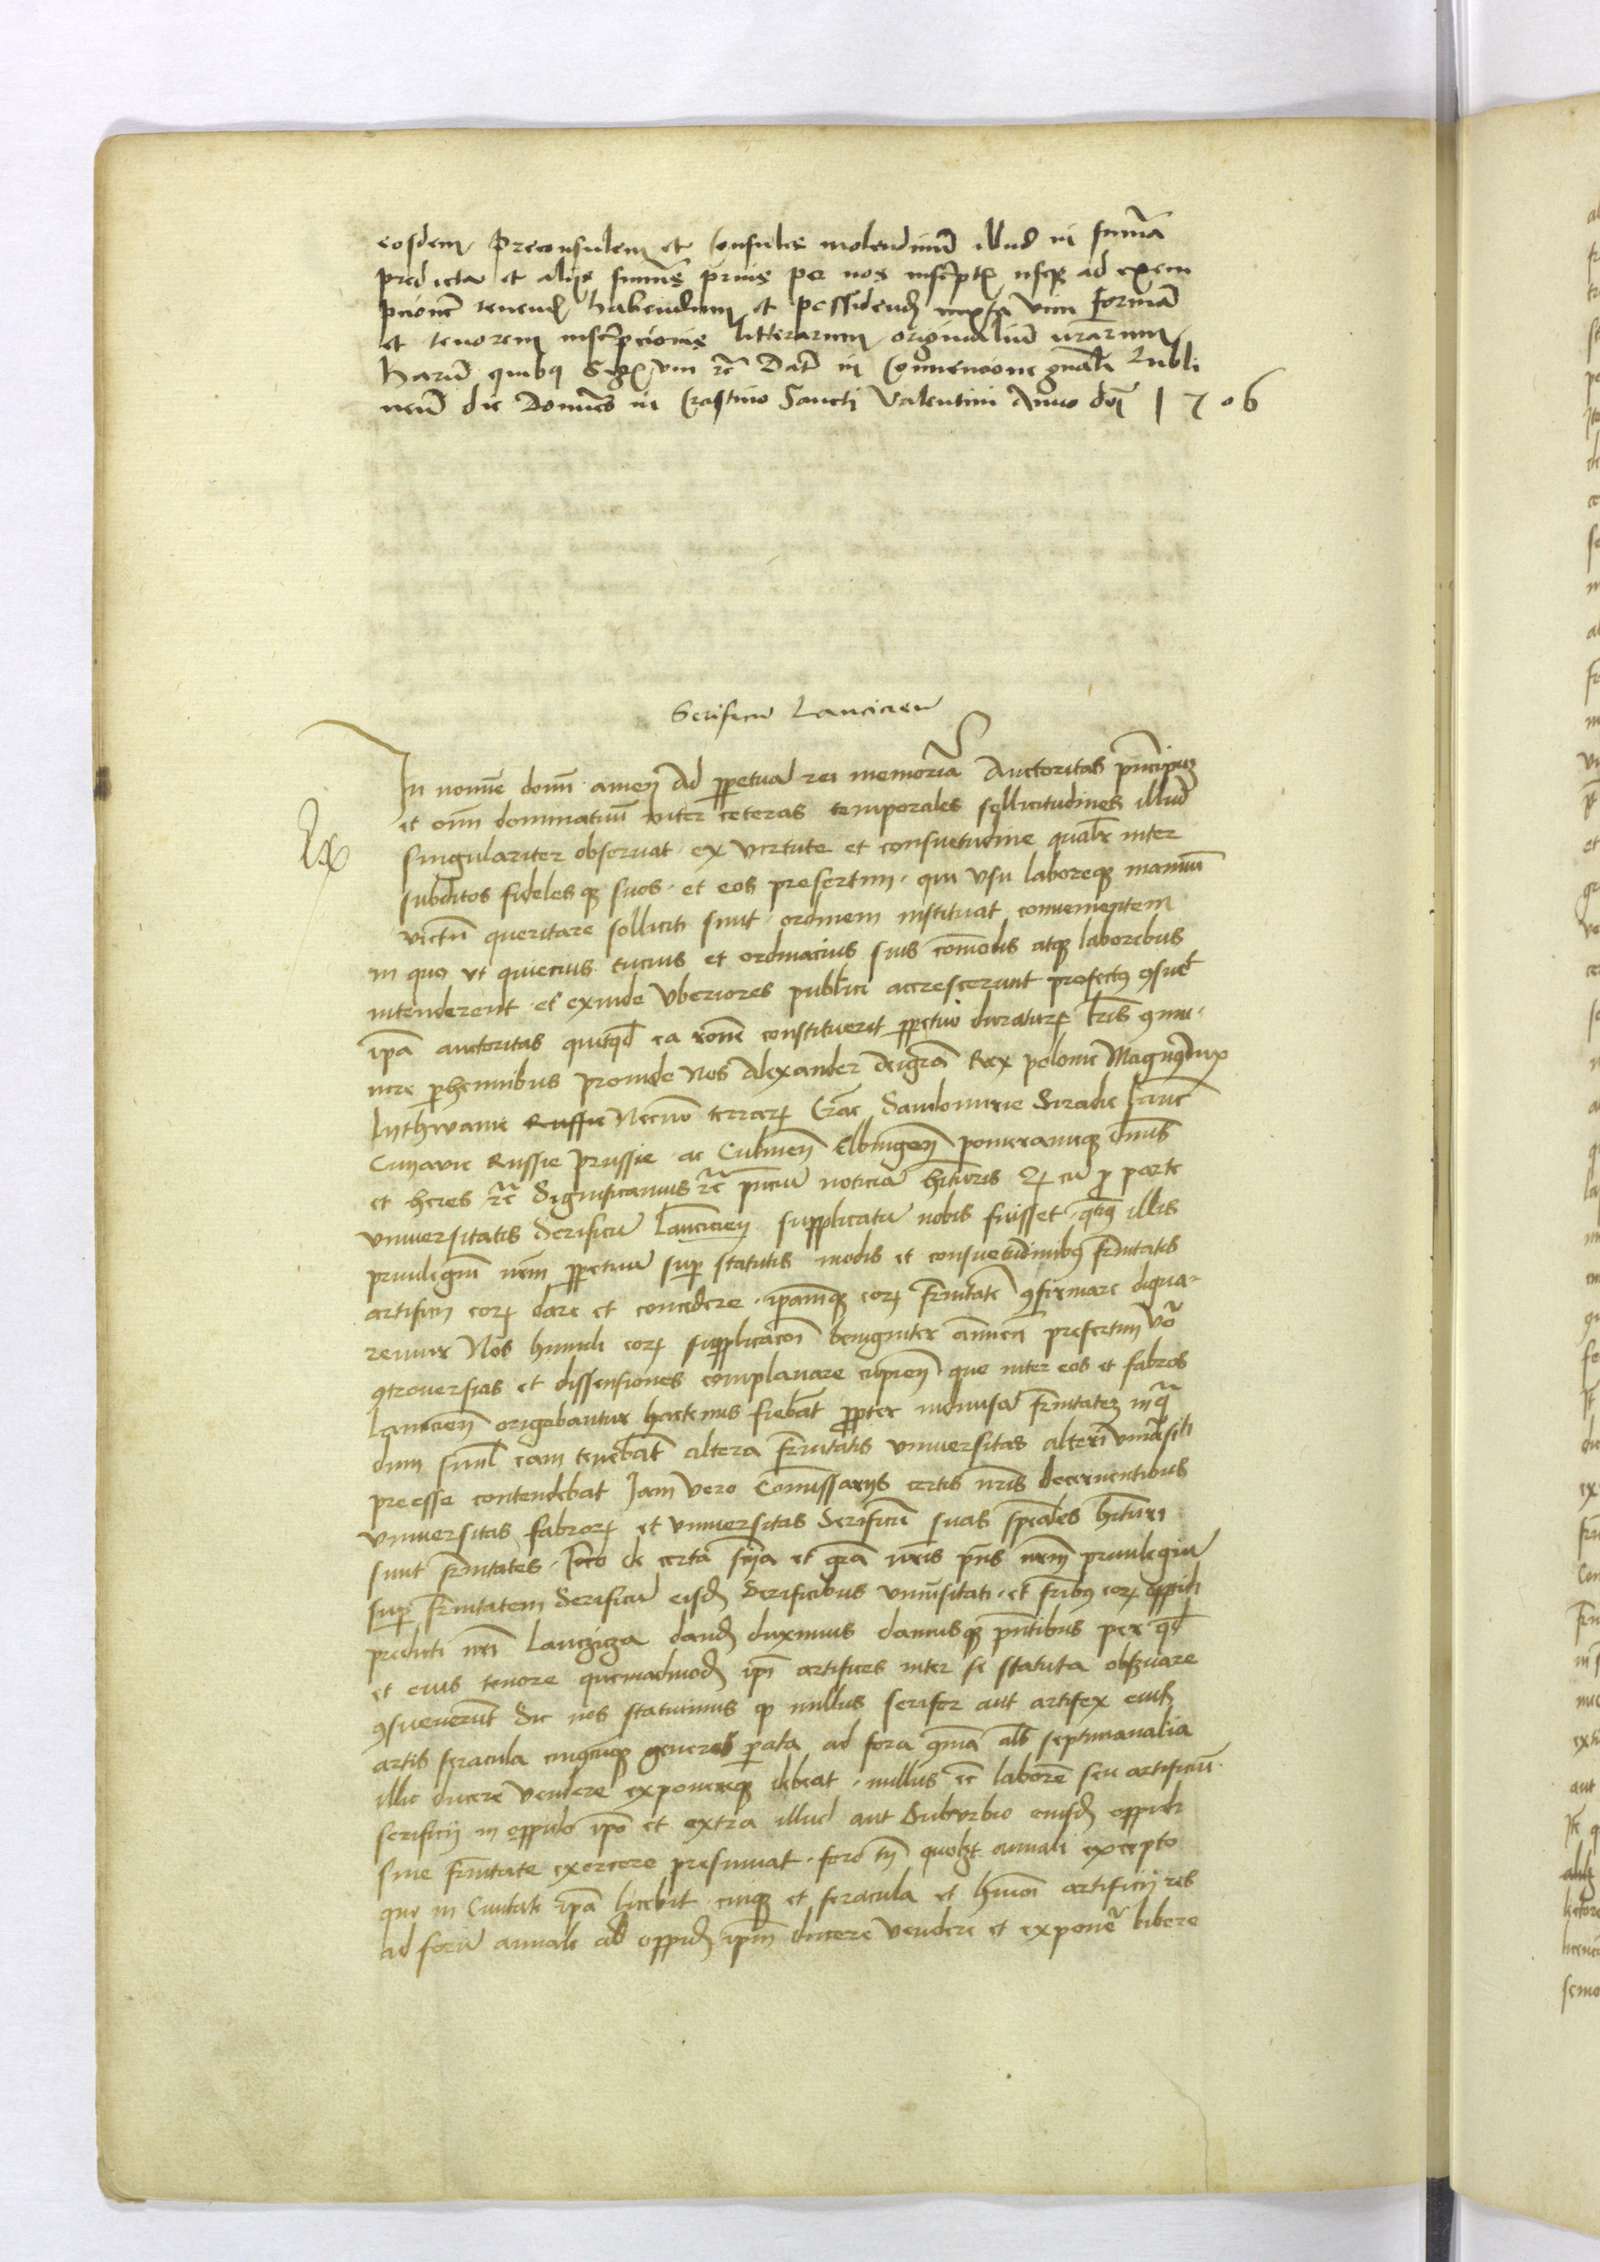 eosdem Preconsulem et Consules molendinū illud in summa
predicta et alijs summis prius per nos inscriptis usque ad exem
pcionē tenend habendum et possidend iuxta vim formā
et tenorem inscripcionis litterarum originaliū nrarum
Harū quibus Sigil Dat in Convencione gnali Lubli
nen die Dominico in Crastino Sancti Valentini Anno dni 1506
Serificū Lancicien
In nomine domini amen Ad perpetuā rei memoriā Auctoritas principum
et omni dominatiuū inter ceteras temporales sollicitudines illud
Rx
singulariter obseruat ex virtute et consuetudine qualr inter
subditos fidelesque suos et eos presertim qui usu laboreque manuū
victū queritare solliciti sunt ordinem instituat convenientem
in quo ut quiecius tucius et ordinacius suis comodis atque laboribus
intenderent et exinde uberiores publici accrescerunt profectus
ipa auctoritas quitquid ea constituerit perpetuo duraturum
perhennibus proinde Nos Alexander dei gra Rex polonie Magnus dux
Lythwanie Russie Necnon terrarum Crac Sandomirie Siradie Lanc
Cuyavie Russie Prussie ac Culmen Elbingen pomeranieque dnus
et heres Significamus noticiā hituris cū pro parte
universitatis Serificū Lancicien supplicatū nobis fuisset illis
privilegiū nrm perpetuū super statutis modis et consuetudinibus frnitatis
artificij eorum dare et concedere ipamque eorum frnitatē confirmare digna-
remur Nos humili eorum supplicacioni benigniter annuen presertim vo
controversias et dissensiones complanare cupien que inter eos et fabros
Lancicien origebantur hactenus fiebat propter indiuisā frnitatem
dum simul eam tenebāt altera frnitatis universitas alteri
preesse contendebat Iam vero Comissarijs certis nris decernentibus
universitas fabrorum et universitas Serificū suas speciales hituri
sunt frnitates de certa scia et gra nris pns nrm privilegiū
super frnitatem Serificū eisdem Serificibus universitati et eorum oppidi
predicti nri Lancziza dand duximus damusque pntibus per qd
et eius tenore quemadmodū ipi artifices inter se statuta obseruare
consueuerūt Sic nos statuimus quod nullus serifex aut artifex eiusdem
artis feracula cuiuscunque generis parata ad fora septimanalia
illic ducere vendere exponereque debeat nullus laborē seu artificiū
serificij in oppido ipo et extra illud aut Suburbio eiusdem oppidi
sine frnitate exercere presumat foro quolibet annali excepto
quo in Civitate ipa licebit cuique et feracula et artificij res
ad forū annale ad oppidum ipm ducere vendere et exponere libere